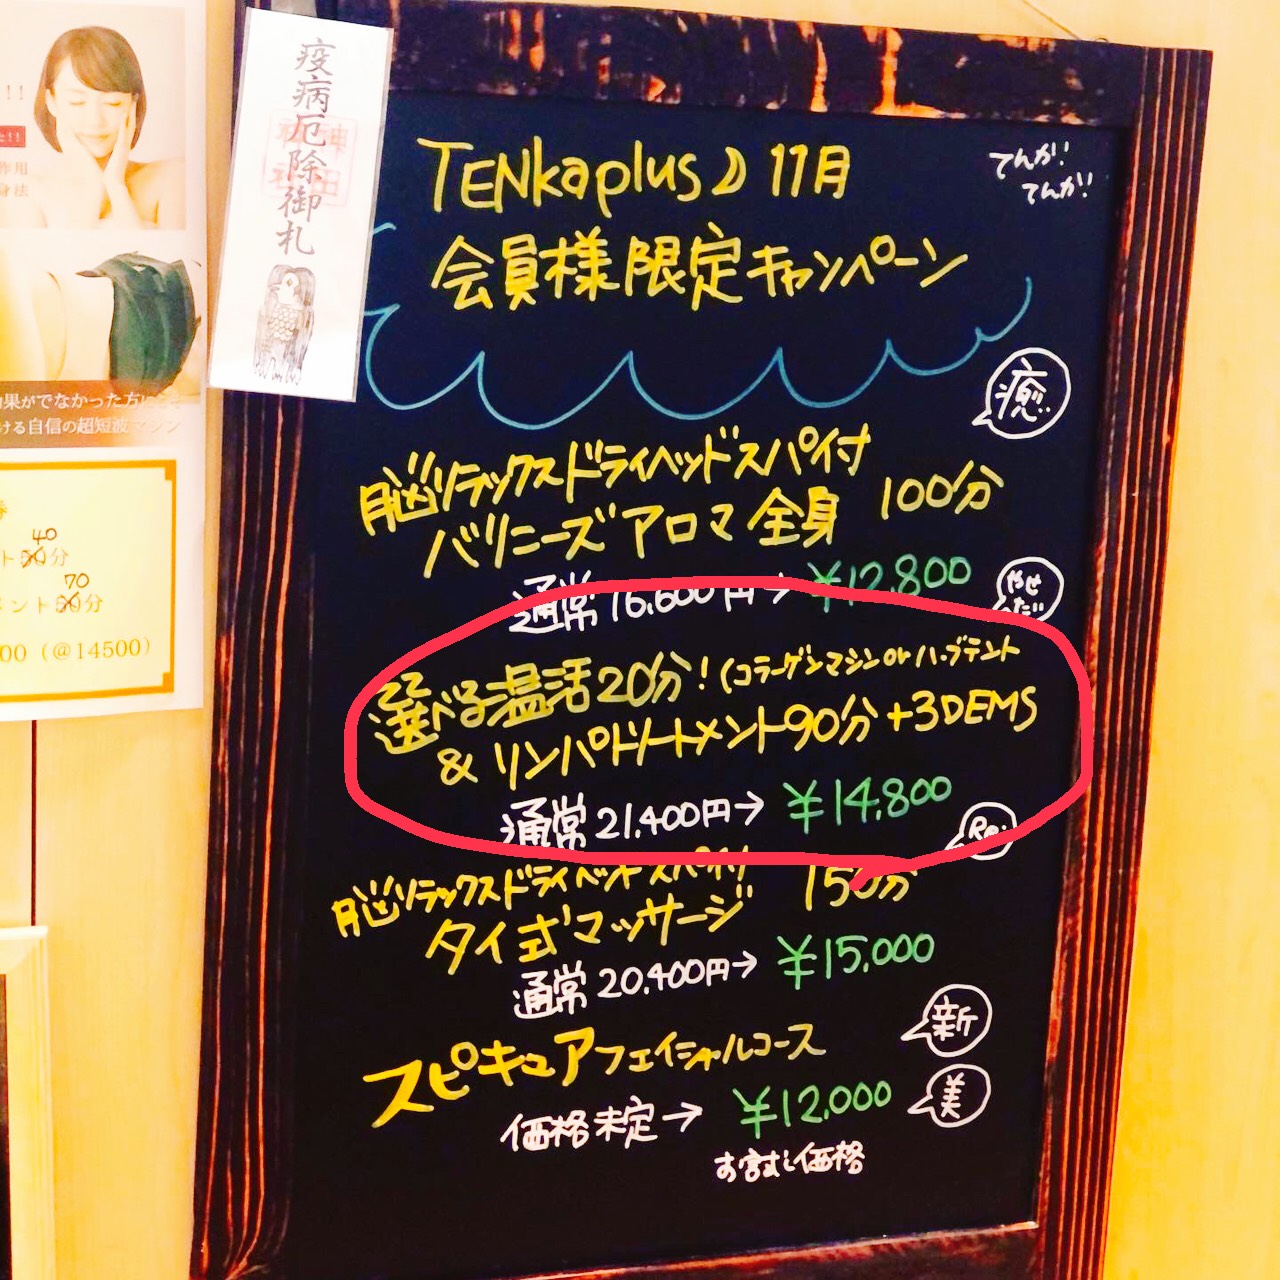 疫病厄除御札
TENkaplus♪ 11月
てんか!
てんか!
会員様限定キャンペーン
癒
脳リラックスドライヘッドスパ付
バリニーズアロマ全身 100分
通常16,600円→ ¥12,800
やせ
たい
選べる温活20分!(コラーゲンマシンorハーブテント
& リンパトリートメント90分+3DEMS
通常21,400円→ ¥14,800
Re:
脳リラックスドライヘッドスパ付
タイ式マッサージ 150分
通常20,400円→ ¥15,000
新
スピキュアフェイシャルコース
美
価格未定→ ¥12,000
お試し価格
!!
作用
身法
果がでなかった方に
ける自信の超短波マシン
券
40
ト50分
70
メント60分
00(@14500)